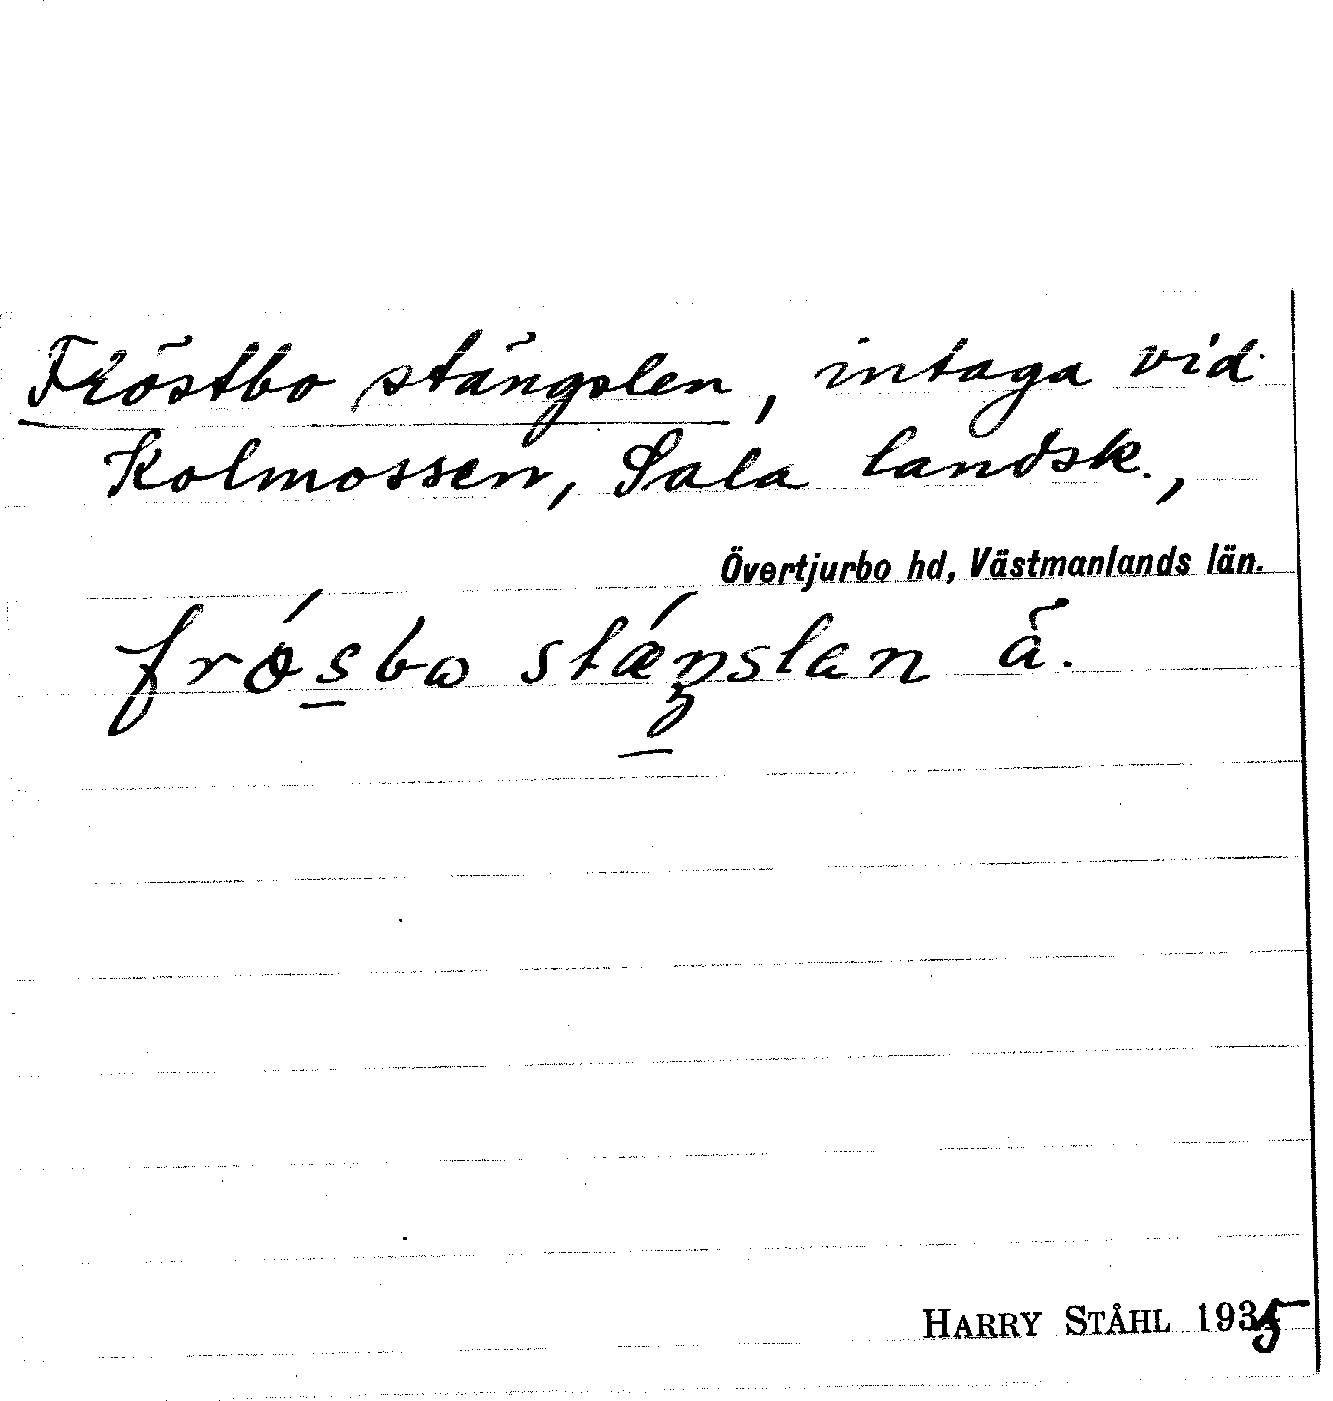 Fröstbo stängslen, intaga vid
Kolmossen, Sala landsk.,
Övertjurbo hd, Västmanlands län.
frǿsbo stǽŋslan ä.
HARRY STÅHL 1935